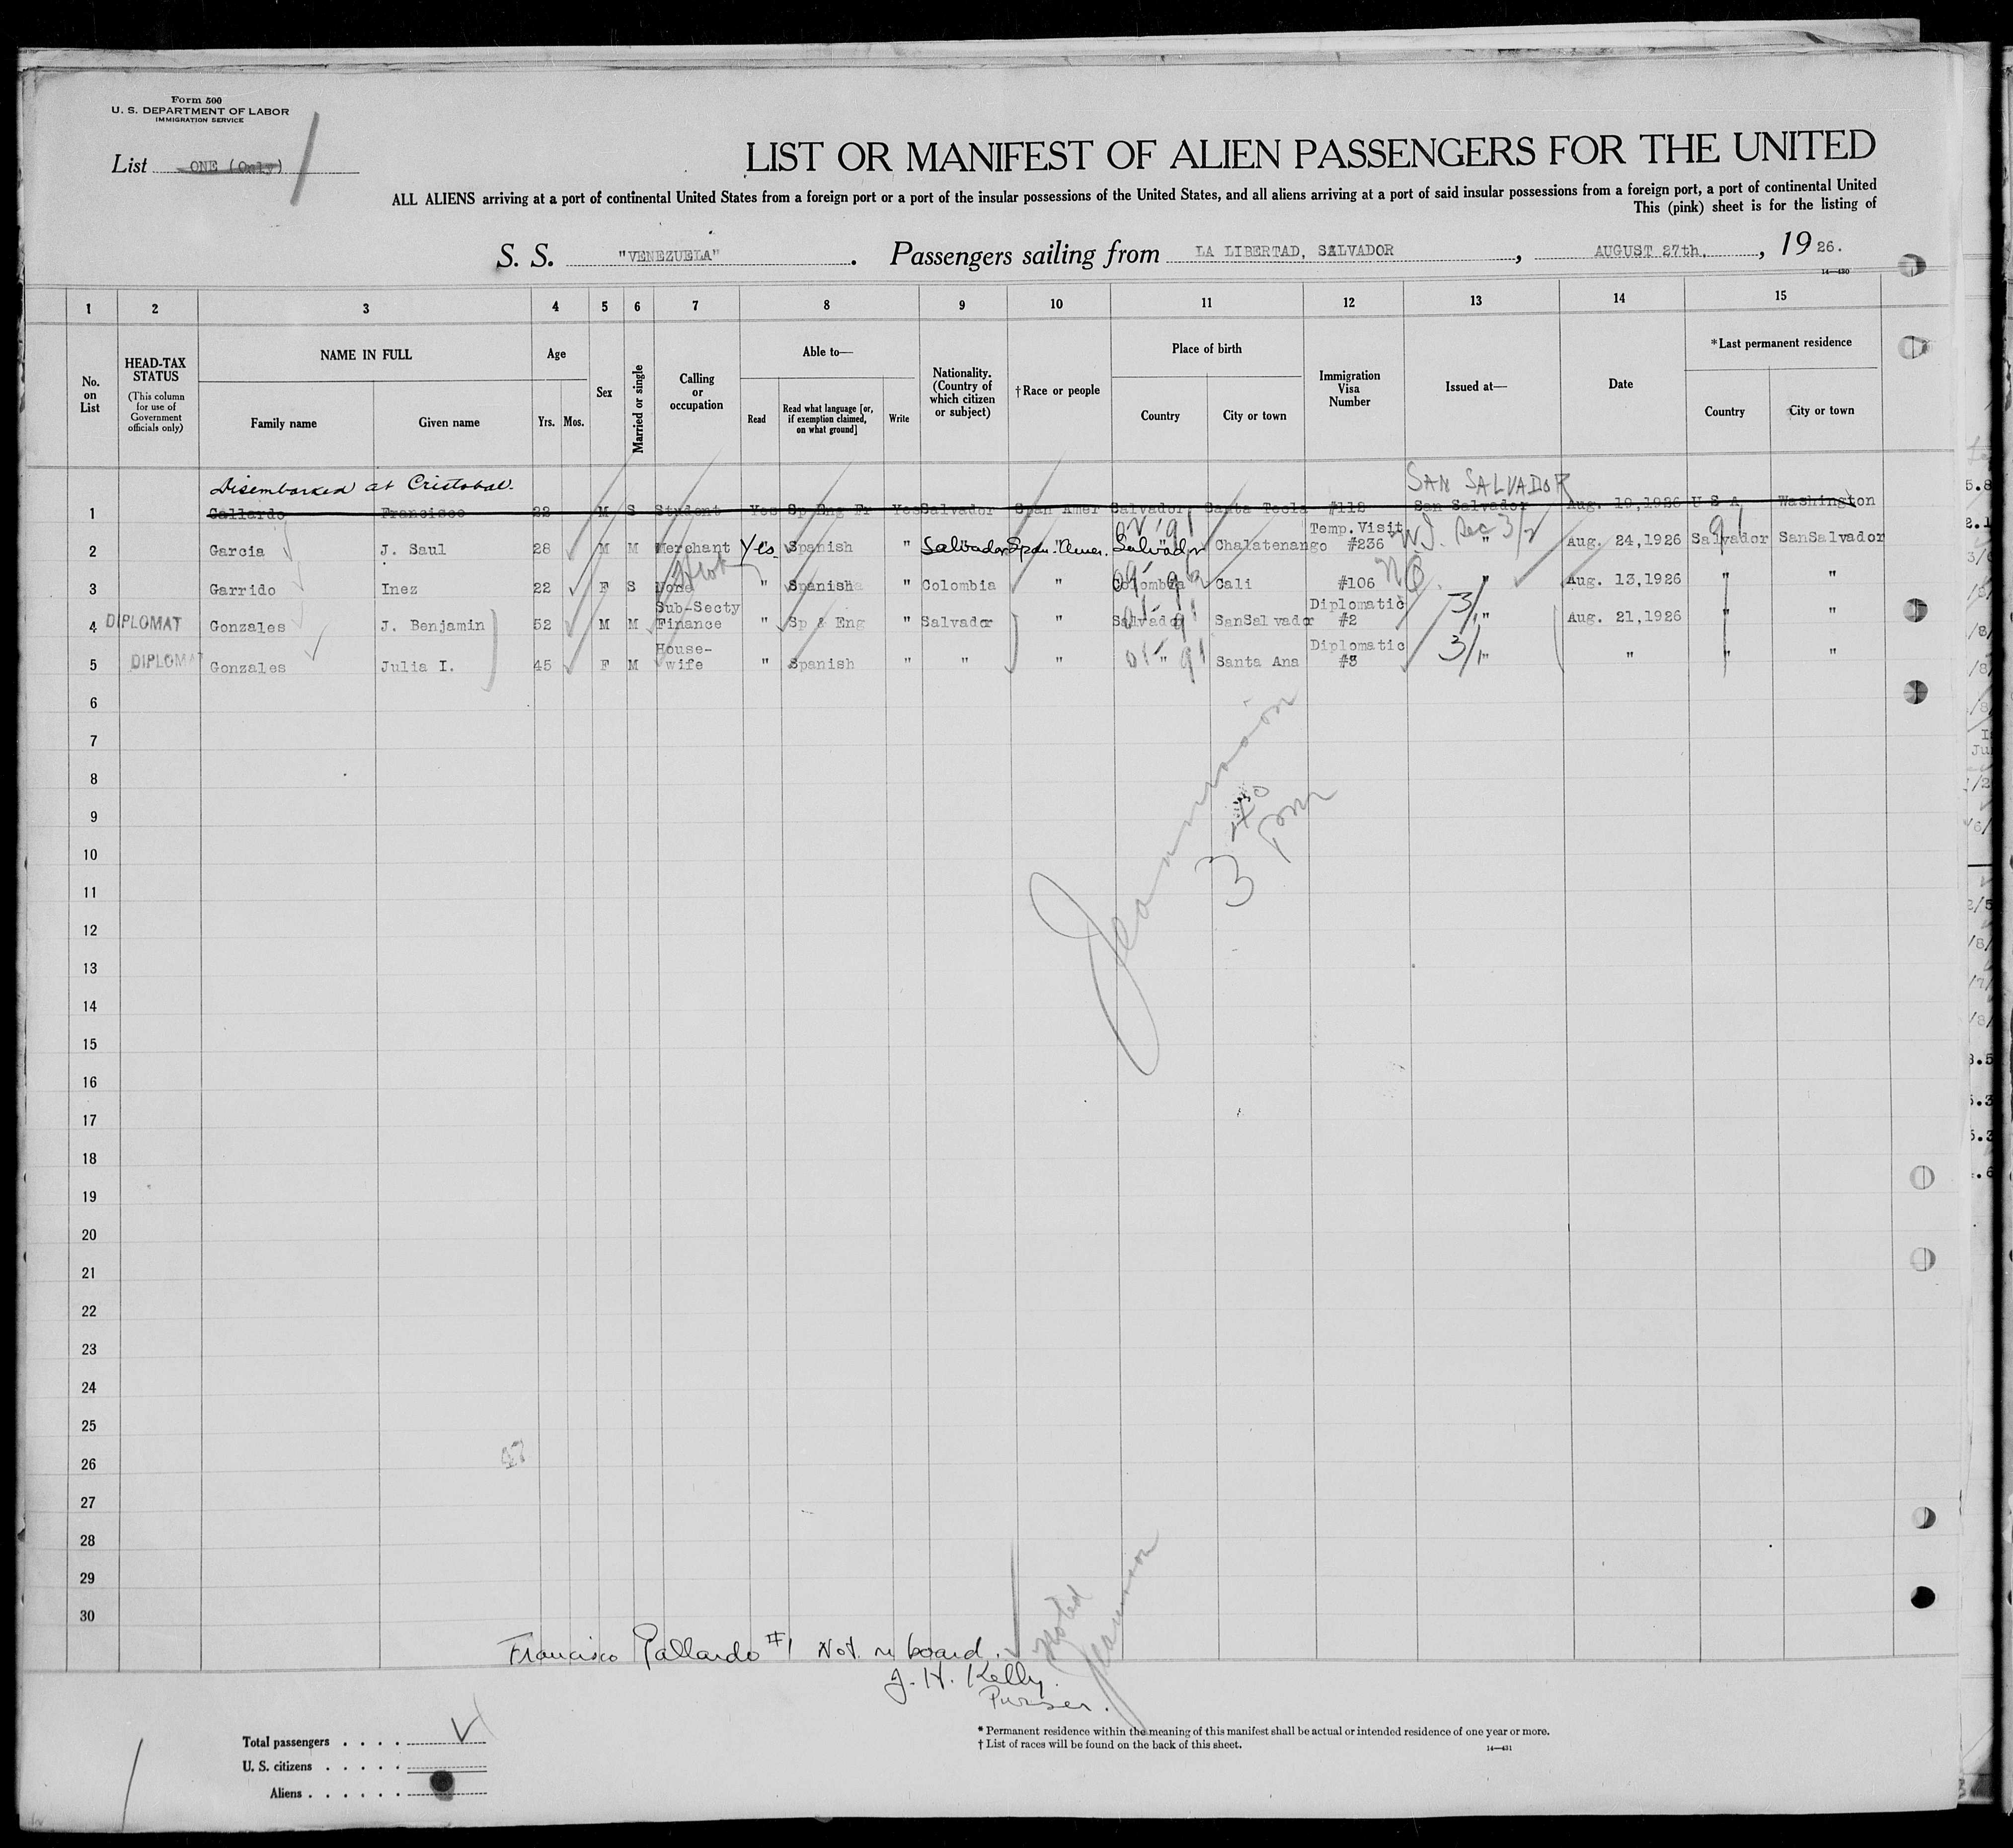 Form 500
U. S. DEPARTMENT OF LABOR
IMMIGRATION SERVICE
List ONE (Only)
LIST OR MANIFEST OF ALIEN PASSENGERS FOR THE UNITED
ALL ALIENS arriving at a port of continental United States from a foreign port or a port of the insular possessions of the United States, and all aliens arriving at a port of said insular possessions from a foreign port, a port of continental United
This (pink) sheet is for the listing of
S. S. "VENEZUELA". Passengers sailing from LA LIBERTAD, SALVADOR, AUGUST 27th, 1926.
14—430
1 2 3 4 5 6 7 8 9 10 11 12 13 14 15
No. on List
HEAD-TAX STATUS
(This column for use of Government officials only)
NAME IN FULL
Family name Given name
Age
Yrs. Mos.
Sex
Married or single
Calling or occupation
Able to—
Read
Read what language [or, if exemption claimed, on what ground]
Write
Nationality. (Country of which citizen or subject)
†Race or people
Place of birth
Country City or town
Immigration Visa Number
Issued at—
Date
*Last permanent residence
Country City or town
Disembarked at Cristobal.
SAN SALVADOR
1 Gallardo Francisco 22 M S Student Yes Sp Eng Fr Yes Salvador Span Amer Salvador Santa Tecla #118 San Salvador Aug. 19,1926 U S A Washington
2 Garcia J. Saul 28 M M Merchant Yes Spanish " Salvador Span. Amer. Salvador Chalatenango Temp. Visit #236 " Aug. 24,1926 Salvador SanSalvador
3 Garrido Inez 22 F S None " Spanish " Colombia " Colombia Cali #106 " Aug. 13,1926 " "
4 DIPLOMAT Gonzales J. Benjamin 52 M M Sub-Secty Finance " Sp & Eng " Salvador " Salvador SanSalvador Diplomatic #2 3/1 " Aug. 21,1926 " "
5 DIPLOMAT Gonzales Julia I. 45 F M House-wife " Spanish " " " " Santa Ana Diplomatic #3 3/1 " " " "
6
7
8
9
10
11
12
13
14
15
16
17
18
19
20
21
22
23
24
25
26
27
28
29
30
3 40 pm
Francisco Gallardo #1 Not on board.
Noted
J. H. Kelly.
Purser.
Total passengers . . . .
U. S. citizens . . . . .
Aliens . . . . . .
* Permanent residence within the meaning of this manifest shall be actual or intended residence of one year or more.
† List of races will be found on the back of this sheet.
14—431